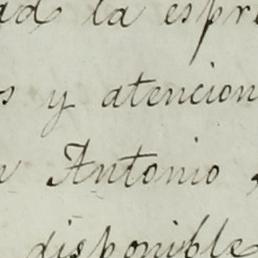 ad la espr
s y atencion
n Antonio,
disponible